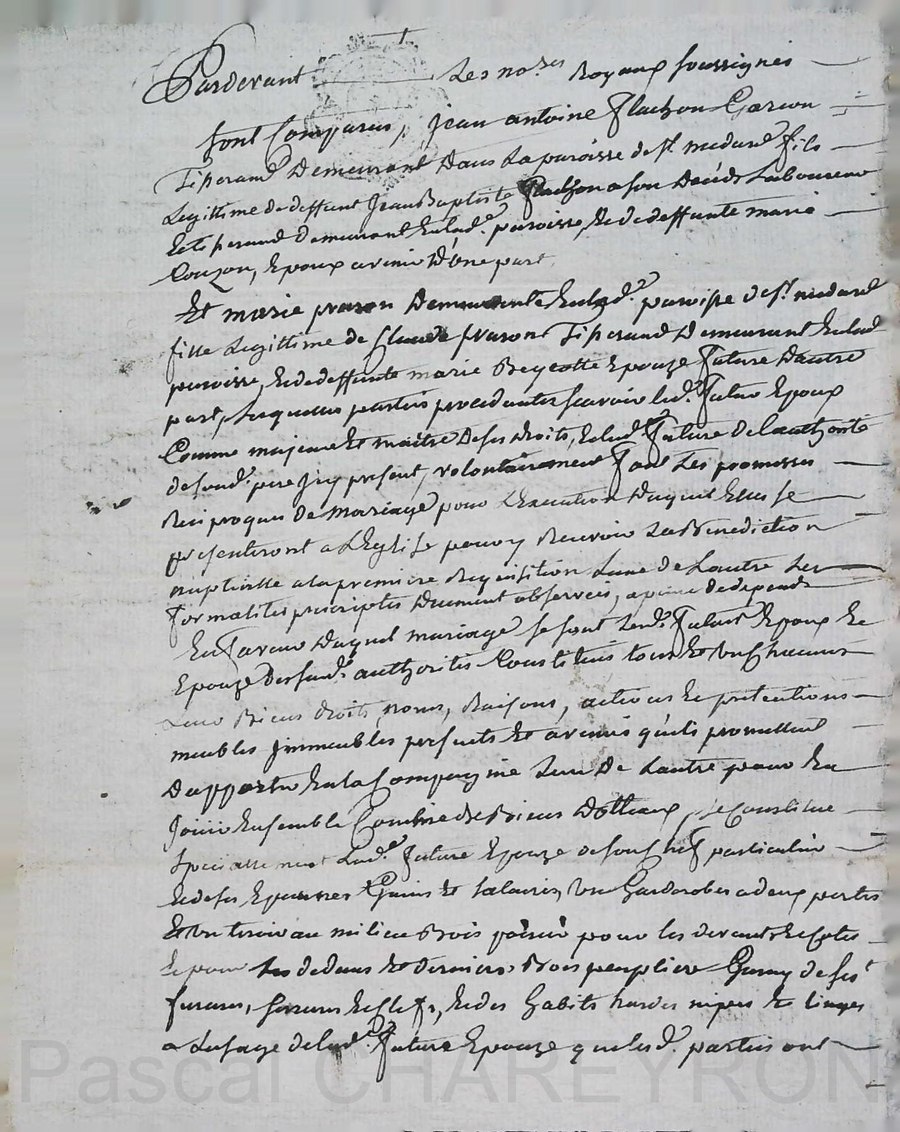 Pardevant Les no.res Royaux soussignés
sont Comparus, jean antoine flachon Garcon
Tisserand Demeurant Dans La paroisse de st. medard fils
Legittime de deffunt Jean Baptiste flachon a son Décéds Laboureur
et tisserand demeurant en lad.e paroisse, et de deffunte marie
Couzon, Epoux avenir D'une part
Et marie prason Demeurante en lad.e paroisse de st. medard
fille Legittime de Claude prason Tisserand Demeurant en lad.
paroisse, et de deffunte marie Reycotte Epouze future Dautre
part, Lesquelles parties procedantes scavoir led.t futur Epoux
Comme majeur et maitre de ses droits, et lad.e future de Lauthorité
de sond. pere Jcy présent, volontairement font Les promesses
Reciproques de mariage pour L'Execution Duquel Elles se
présenteront a L'Eglise pour y Recevoir La Bénédiction
nuptialle a la premiere Requisition Lune de Lautre Les
formalités prescriptes Duement observées, a peine de depends
En faveur Duquel mariage se sont Lesd. futurs Epoux Et
Epouze des susd. authorités Constitués tous et uns chacuns
Leurs Biens droits, noms, Raisons, actions et prétentions
meubles jmmeubles présents et avenir qu'ils promettent
D'apporter En la Compagnie Lun De Lautre pour En
Jouir Ensemble Comme de Biens Dotteaux, se Constitue
Specialle ment Lad.e future Epouze de son chef particulier
et de ses Epargnes Gains et Salaires, un Garderobes a deux portes
Et un tiroir au milieu Bois pour les devants et cotés
et pour Les dedans et derniers Bois peuplier Garny de ses
ferures, serures et clefs, et des habits hardes nipes et linges
a Lusage de lad.e future Epouze que lesd. parties ont
Pascal CHAREYRON